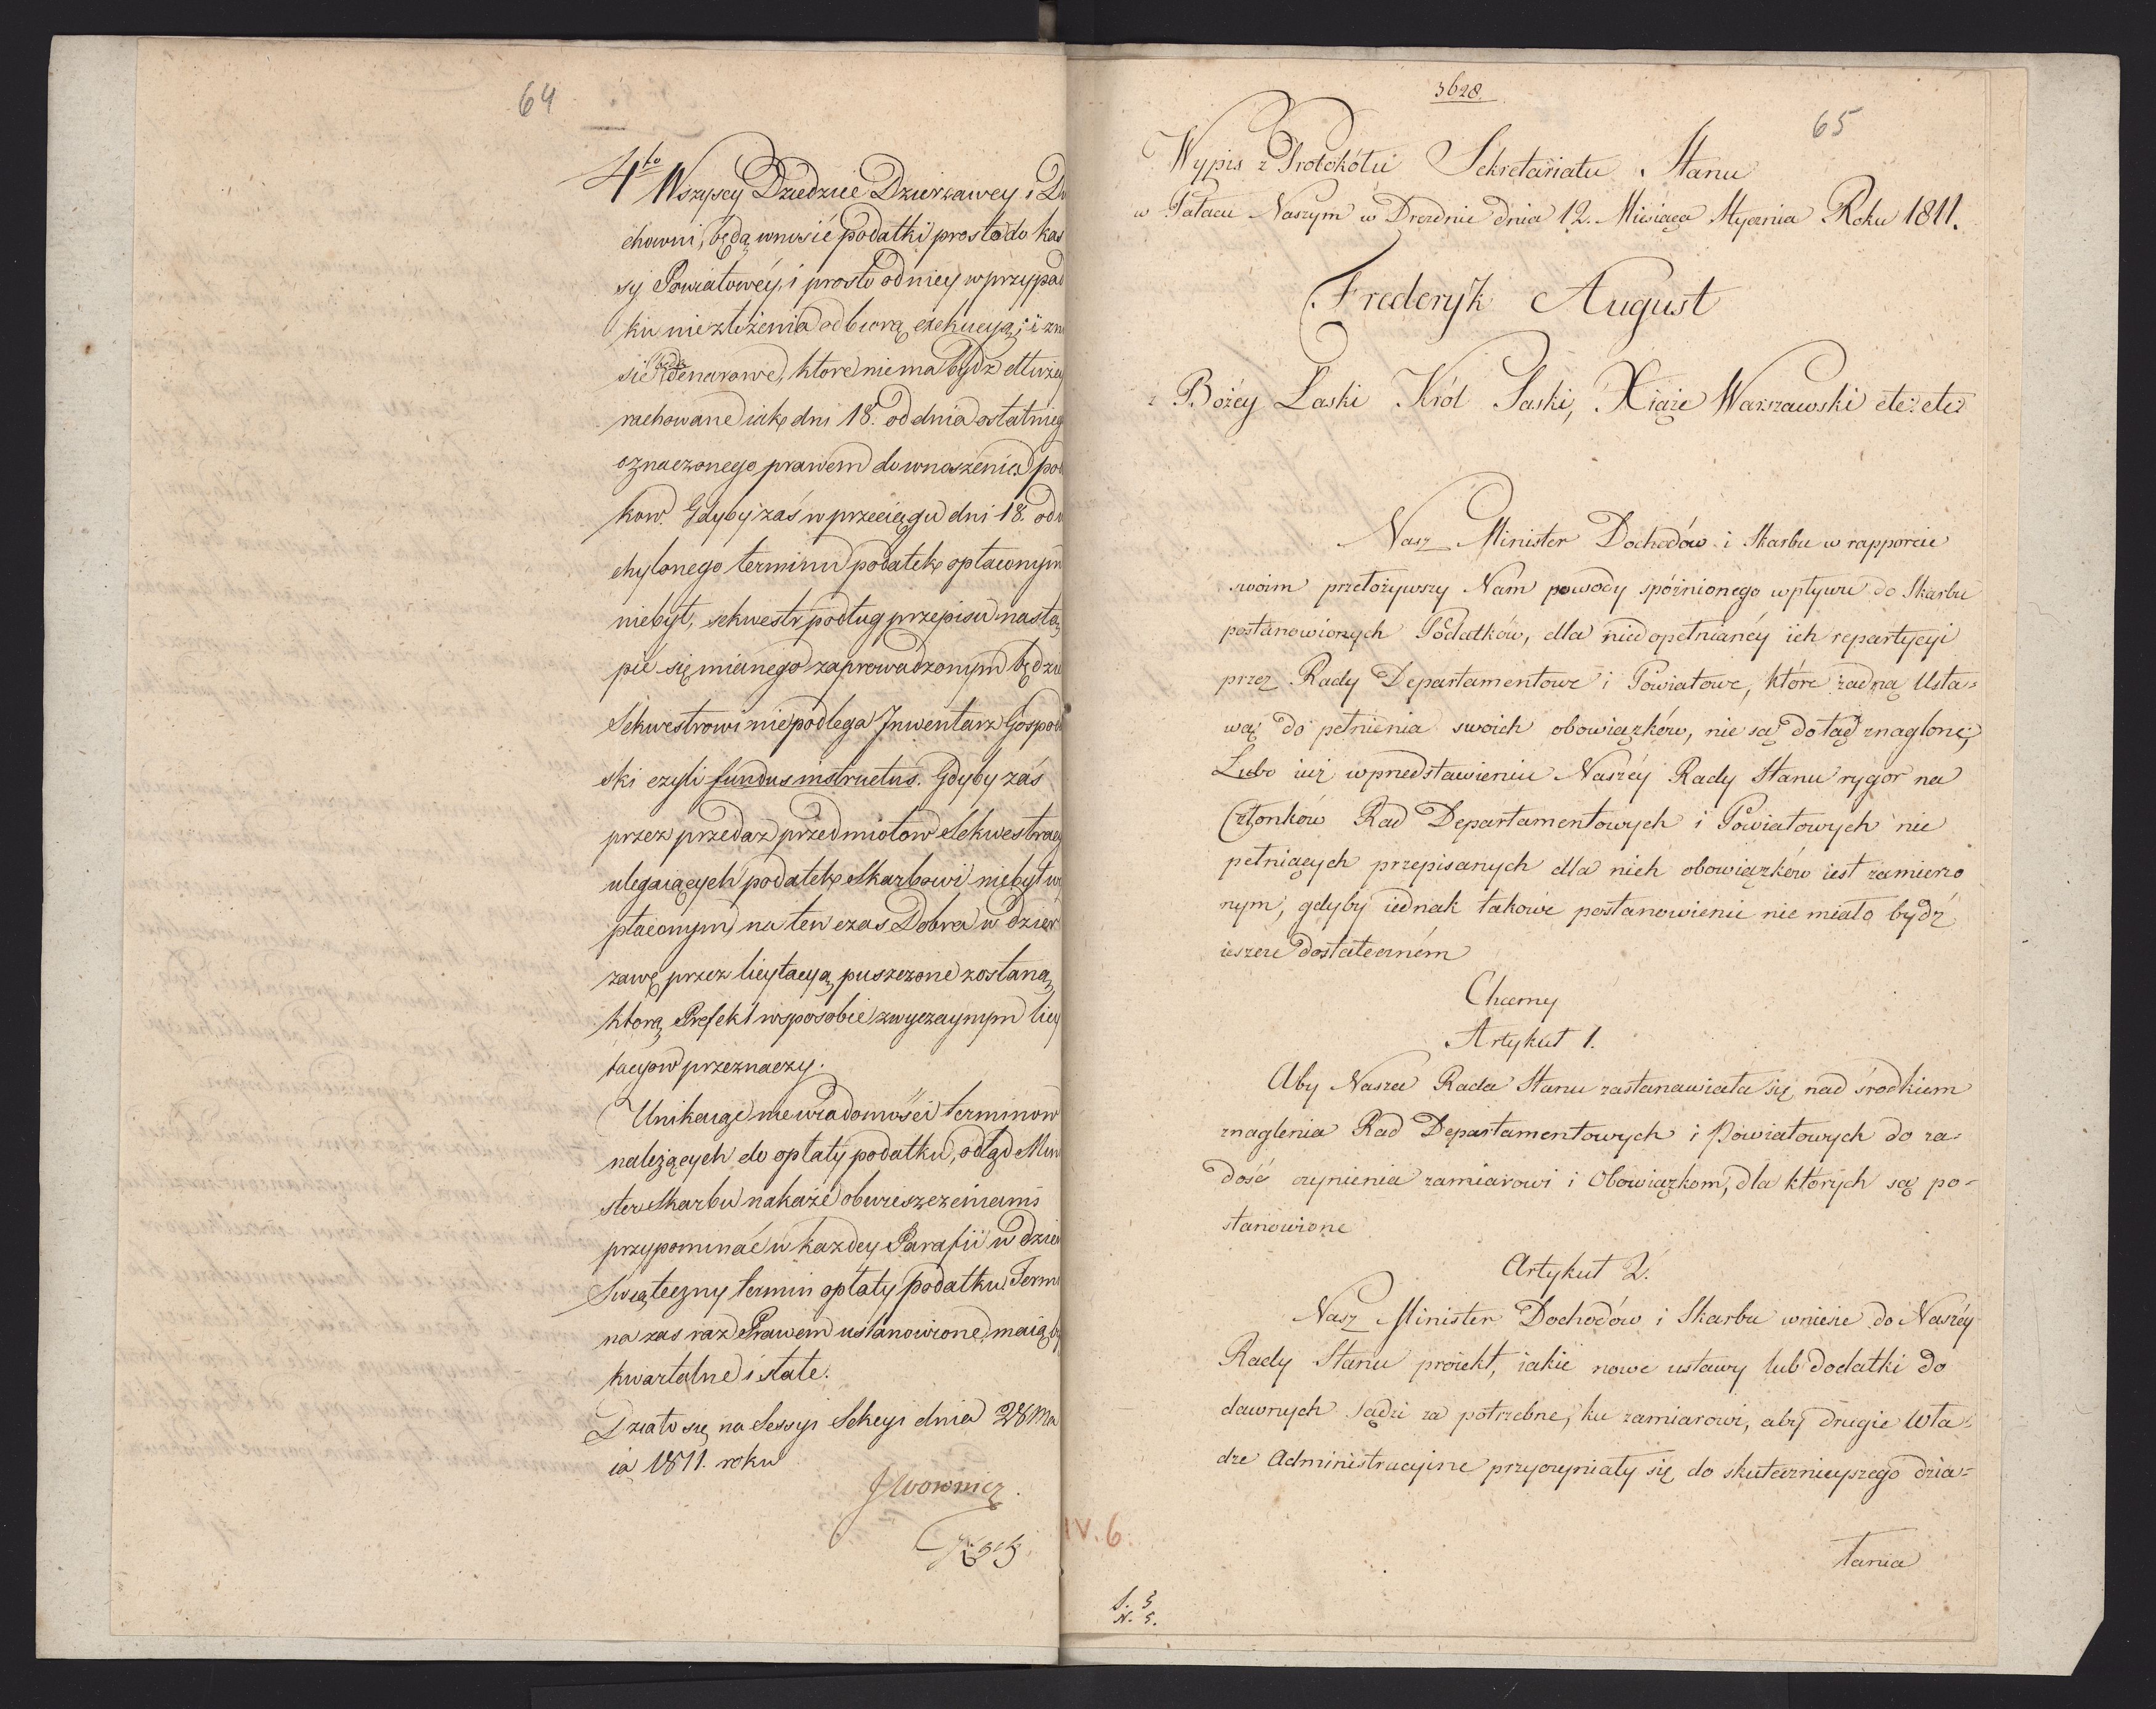 64
4to Wszyscy Dziedzice Dzierzawcy i Du
chowni, będą wnosić podatki prosto do kas
sy Powiatowéy, i prosto od niey w przypad
ku niezłożenia odbiorą exekucyą; i
sie będą denarowe, ktore niema bydz dłużey
rachowane iak dni 18. od dnia ostatnieg
oznaczonego prawem do wnaszenia po
kow. Gdyby zaś w przeciągu dni 18. od
chylonego terminu podatek opłaconym
niebył, sekwestr podług przepisu nastą
pić się mianego zaprowadzonym będzie
Sekwestrowi nie podlega Inwentarz Gospod
ski czyli fundus instructus. Gdyby zaś
przez przedaz przedmiotow Sekwestracy
ulegaiących podatek Skarbowi niebył w
płaconym na ten czas Dobra w dzier
zawę przez licytacyą puszczone zostaną,
ktorą Prefekt w sposobie zwyczaynym licy
tacyow przeznaczy.
Unikaiąc niewiadomości terminow
należących do opłaty podatku, odtąd Min
ster Skarbu nakaże obwieszczeniami
przypominać w kazdey Parafii w dzień
Swiąteczny termin opłaty podatku. Term
na zas raz Prawem ustanowione maią by
kwartalne i stałe.
Działo się na Sessyi Sekcyi dnia 28 Ma
ia 1811. roku
Woronicz
3628.
65
Wypis z Protokółu Sekretariatu Stanu
w Pałacu Naszym w Dreznie dnia 12. Miesiąca Stycznia Roku 1811.
Frederyk August
z Bożéy Łaski Król Saski, Xiąże Warszawski etc: etc:
Nasz Minister Dochodów i Skarbu w rapporcie
swoim przełożywszy Nam powody spóźnionego wpływu do Skarbu
postanowionych Podatków, dla niedopełnianéy ich repartycyi
przez Rady Departamentowe i Powiatowe, które żadną Usta=
wą do pełnienia swoich obowiązków, nie są dotąd znaglone;
Lubo iuż w przedstawieniu Naszéy Rady Stanu rygor na
Członków Rad Departamentowych i Powiatowych nie
pełniących przepisanych dla nich obowiązków iest zamierzo
nym, gdyby iednak takowe postanowienie nie miało bydź
ieszcze dostateczném
Chcemy
Artykuł 1.
Aby Nasza Rada Stanu zastanawiała się nad środkiem
znaglenia Rad Departamentowych i Powiatowych do za=
dość czynienia zamiarowi i Obowiązkom, dla których są po=
stanowione
Artykuł 2.
Nasz Minister Dochodów i Skarbu wniesie do Naszéy
Rady Stanu proiekt, iakie nowe ustawy lub dodatki do
dawnych sądzi za potrzebne, ku zamiarowi, aby drugie Wła=
dze Administracyine przyczyniały się do skutecznieyszego dzia=
łania
IV. 6.
S. 3
N. 5.